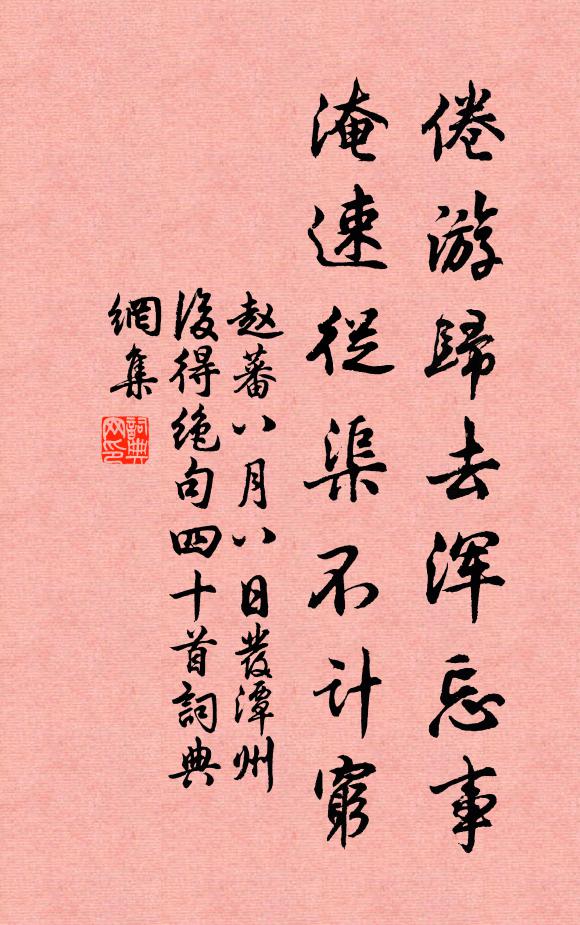 倦游歸去浑忘事
淹速從渠不计窮
赵蕃八月八日發潭州
後得绝句四十首詞典
網集
詞典網印